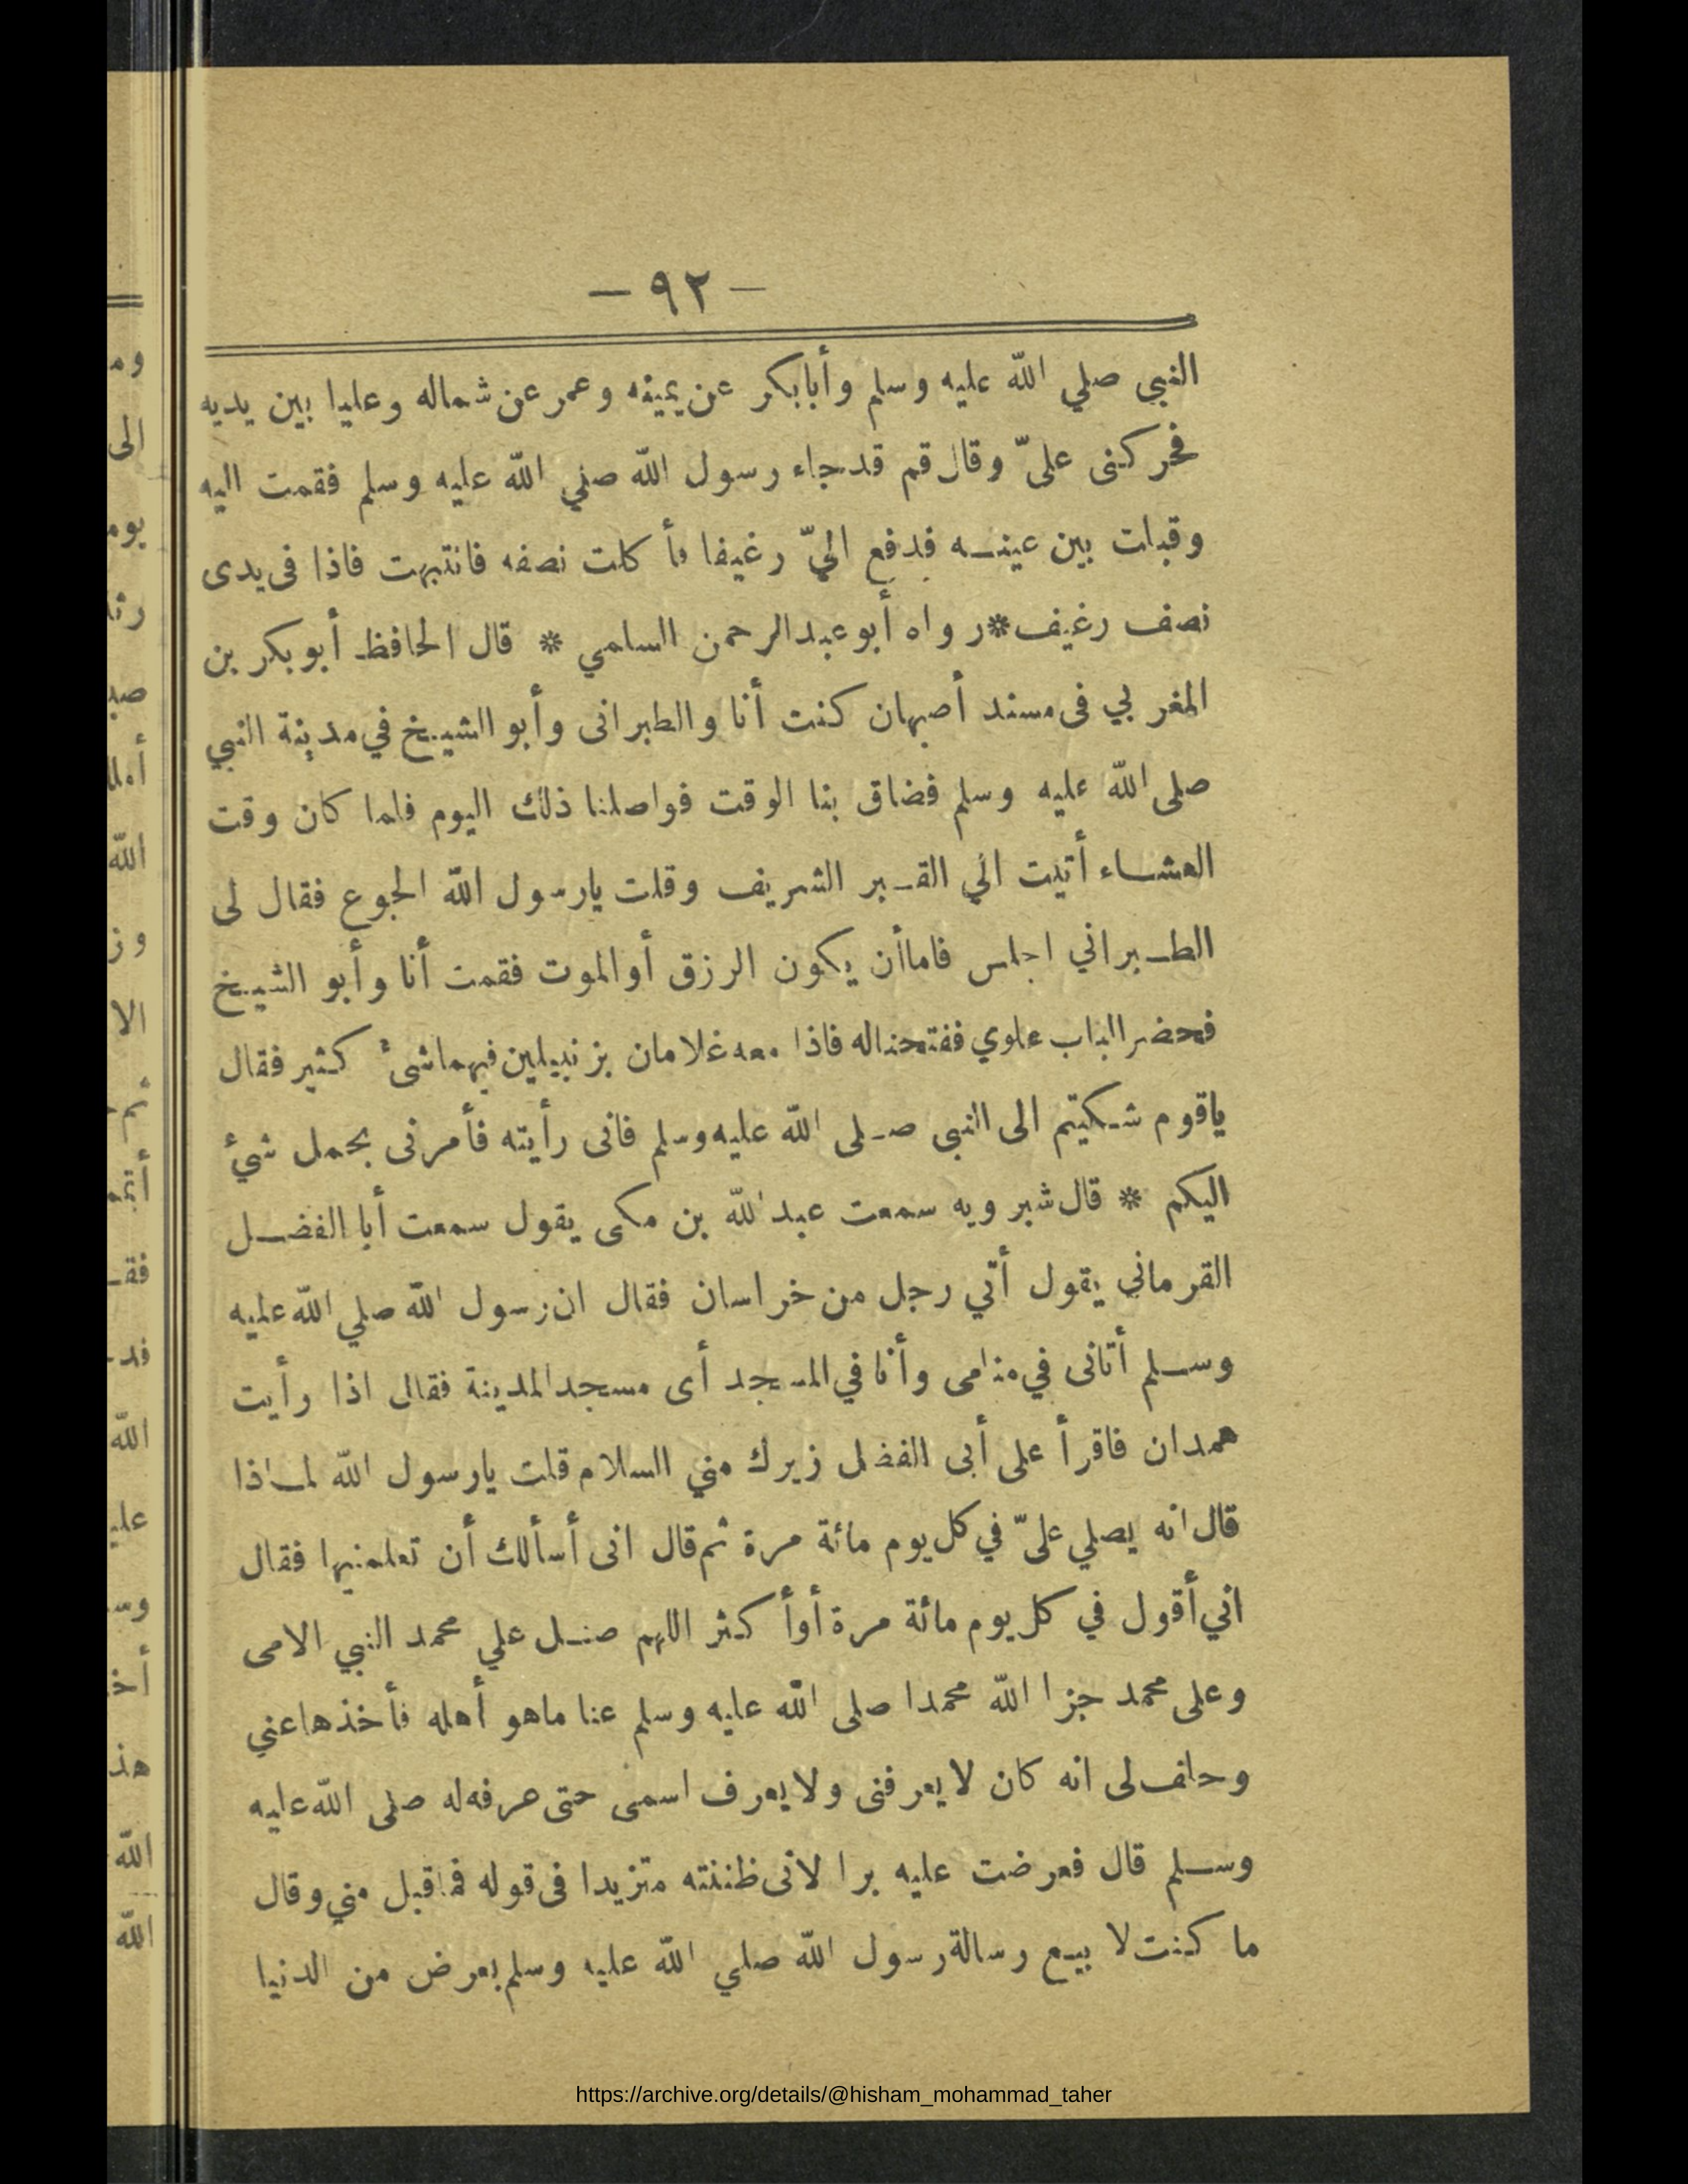 — ٩٢ —
النبى صلي الله عليه وسلم وأبابكر عن يمينه وعمر عن شماله وعليا بين يديه
فحركنى علىّ وقال قم قد جاء رسول الله صلي الله عليه وسلم فقمت اليه
وقبلت بين عينيه فدفع اليّ رغيفا فأكلت نصفه فانتبهت فاذا فى يدى
نصف رغيف * رواه أبو عبد الرحمن السلمي * قال الحافظ أبو بكر بن
المغربي فى مسند أصبهان كنت أنا والطبرانى وأبو الشيخ في مدينة النبي
صلى الله عليه وسلم فضاق بنا الوقت فواصلنا ذلك اليوم فلما كان وقت
العشاء أتيت الي القبر الشريف وقلت يارسول الله الجوع فقال لى
الطبراني اجلس فاما أن يكون الرزق أو الموت فقمت أنا وأبو الشيخ
فحضر الباب علوي ففتحنا له فاذا معه غلامان بزنبيلين فيهما شئ كثير فقال
ياقوم شكيتم الى النبى صلى الله عليه وسلم فانى رأيته فأمرنى بحمل شئ
اليكم * قال شبرويه سمعت عبد الله بن مكى يقول سمعت أبا الفضل
القرماني يقول أتي رجل من خراسان فقال ان رسول الله صلي الله عليه
وسلم أتانى في منامى وأنا في المسجد أى مسجد المدينة فقال اذا رأيت
همدان فاقرأ على أبى الفضل زيرك مني السلام قلت يارسول الله لماذا
قال انه يصلي علىّ في كل يوم مائة مرة ثم قال انى أسألك أن تعلمنيها فقال
اني أقول في كل يوم مائة مرة أو أكثر اللهم صل علي محمد النبي الامى
وعلى محمد جزا الله محمدا صلى الله عليه وسلم عنا ماهو أهله فأخذها عني
وحلف لى انه كان لا يعرفنى ولا يعرف اسمى حتى عرفه له صلى الله عليه
وسلم قال فعرضت عليه برا لانى ظننته متزيدا فى قوله فما قبل مني وقال
ما كنت لا بيع رسالة رسول الله صلي الله عليه وسلم بعرض من الدنيا
https://archive.org/details/@hisham_mohammad_taher